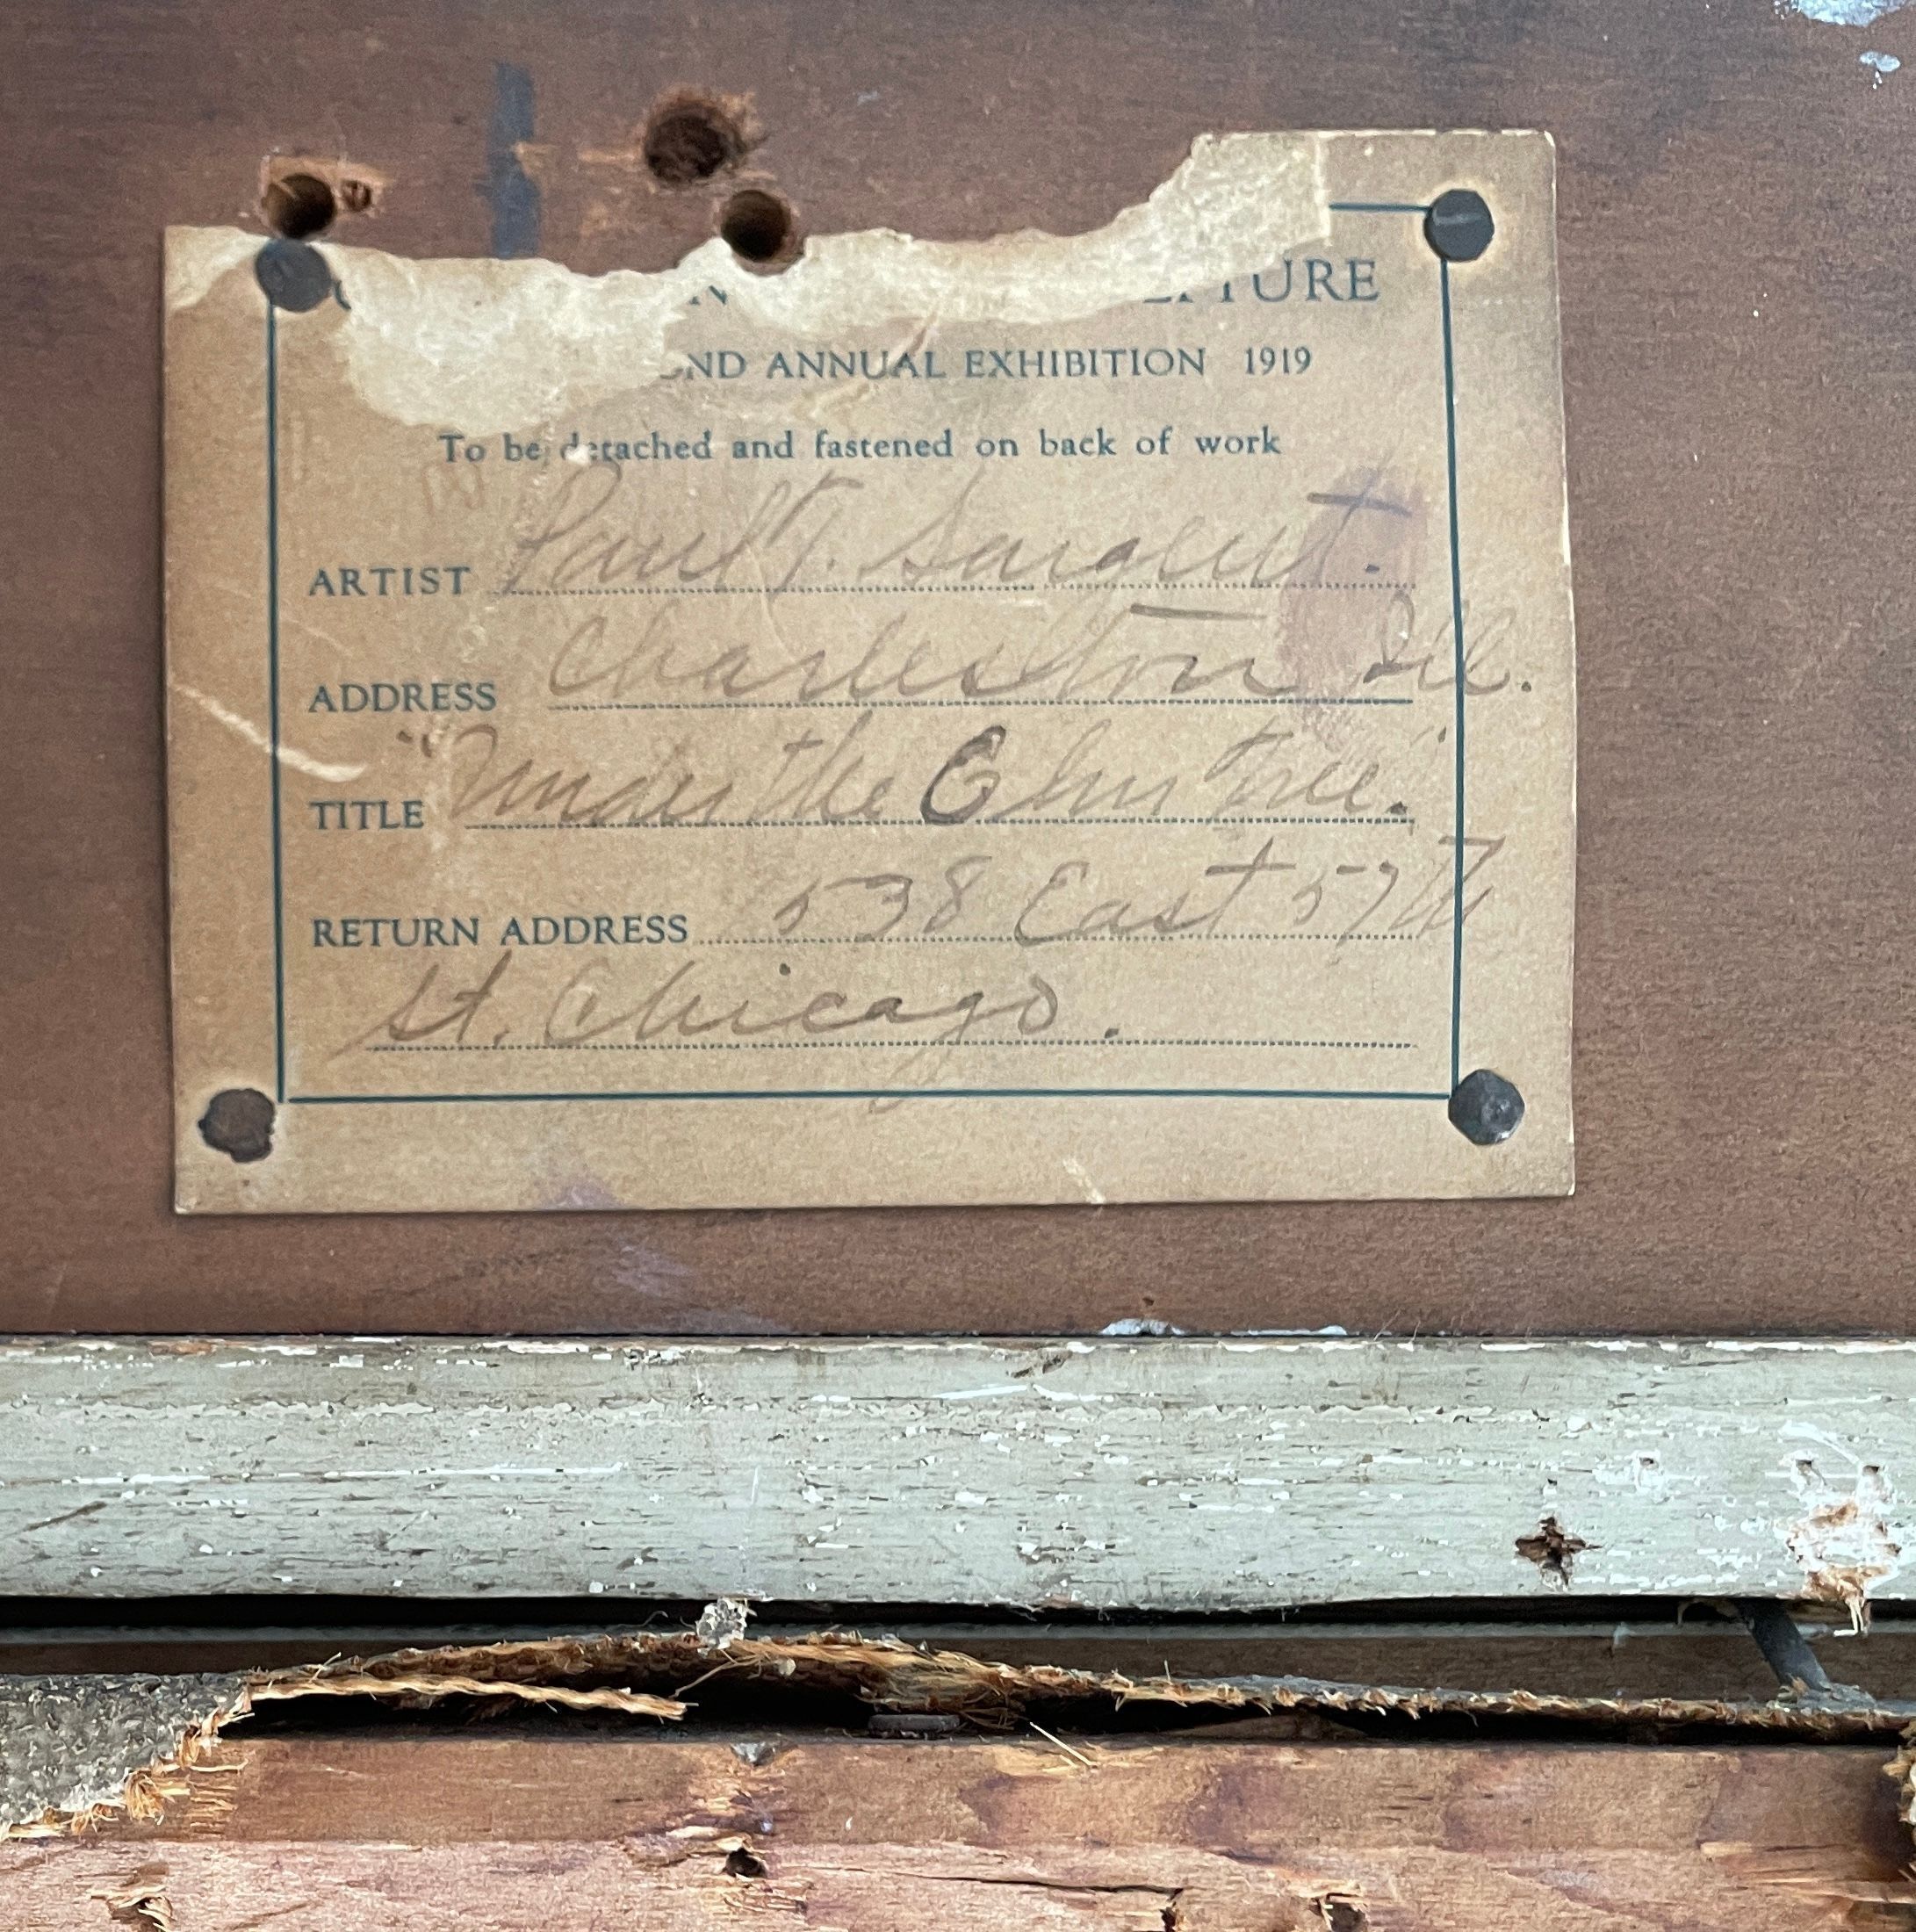 ND ANNUAL EXHIBITION 1919
To be detached and fastened on back of work
ARTIST Paul T. Sargent.
ADDRESS Charleston Ill.
TITLE "Under the Elm Tree".
RETURN ADDRESS 538 East 57th
St. Chicago.